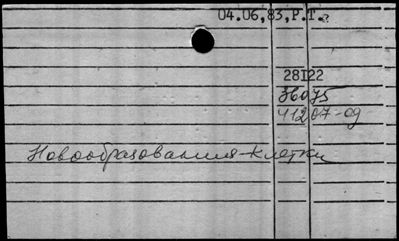 04.06,83,Р.Т.
28I22
36075
41207-09
Новообразования-клетки